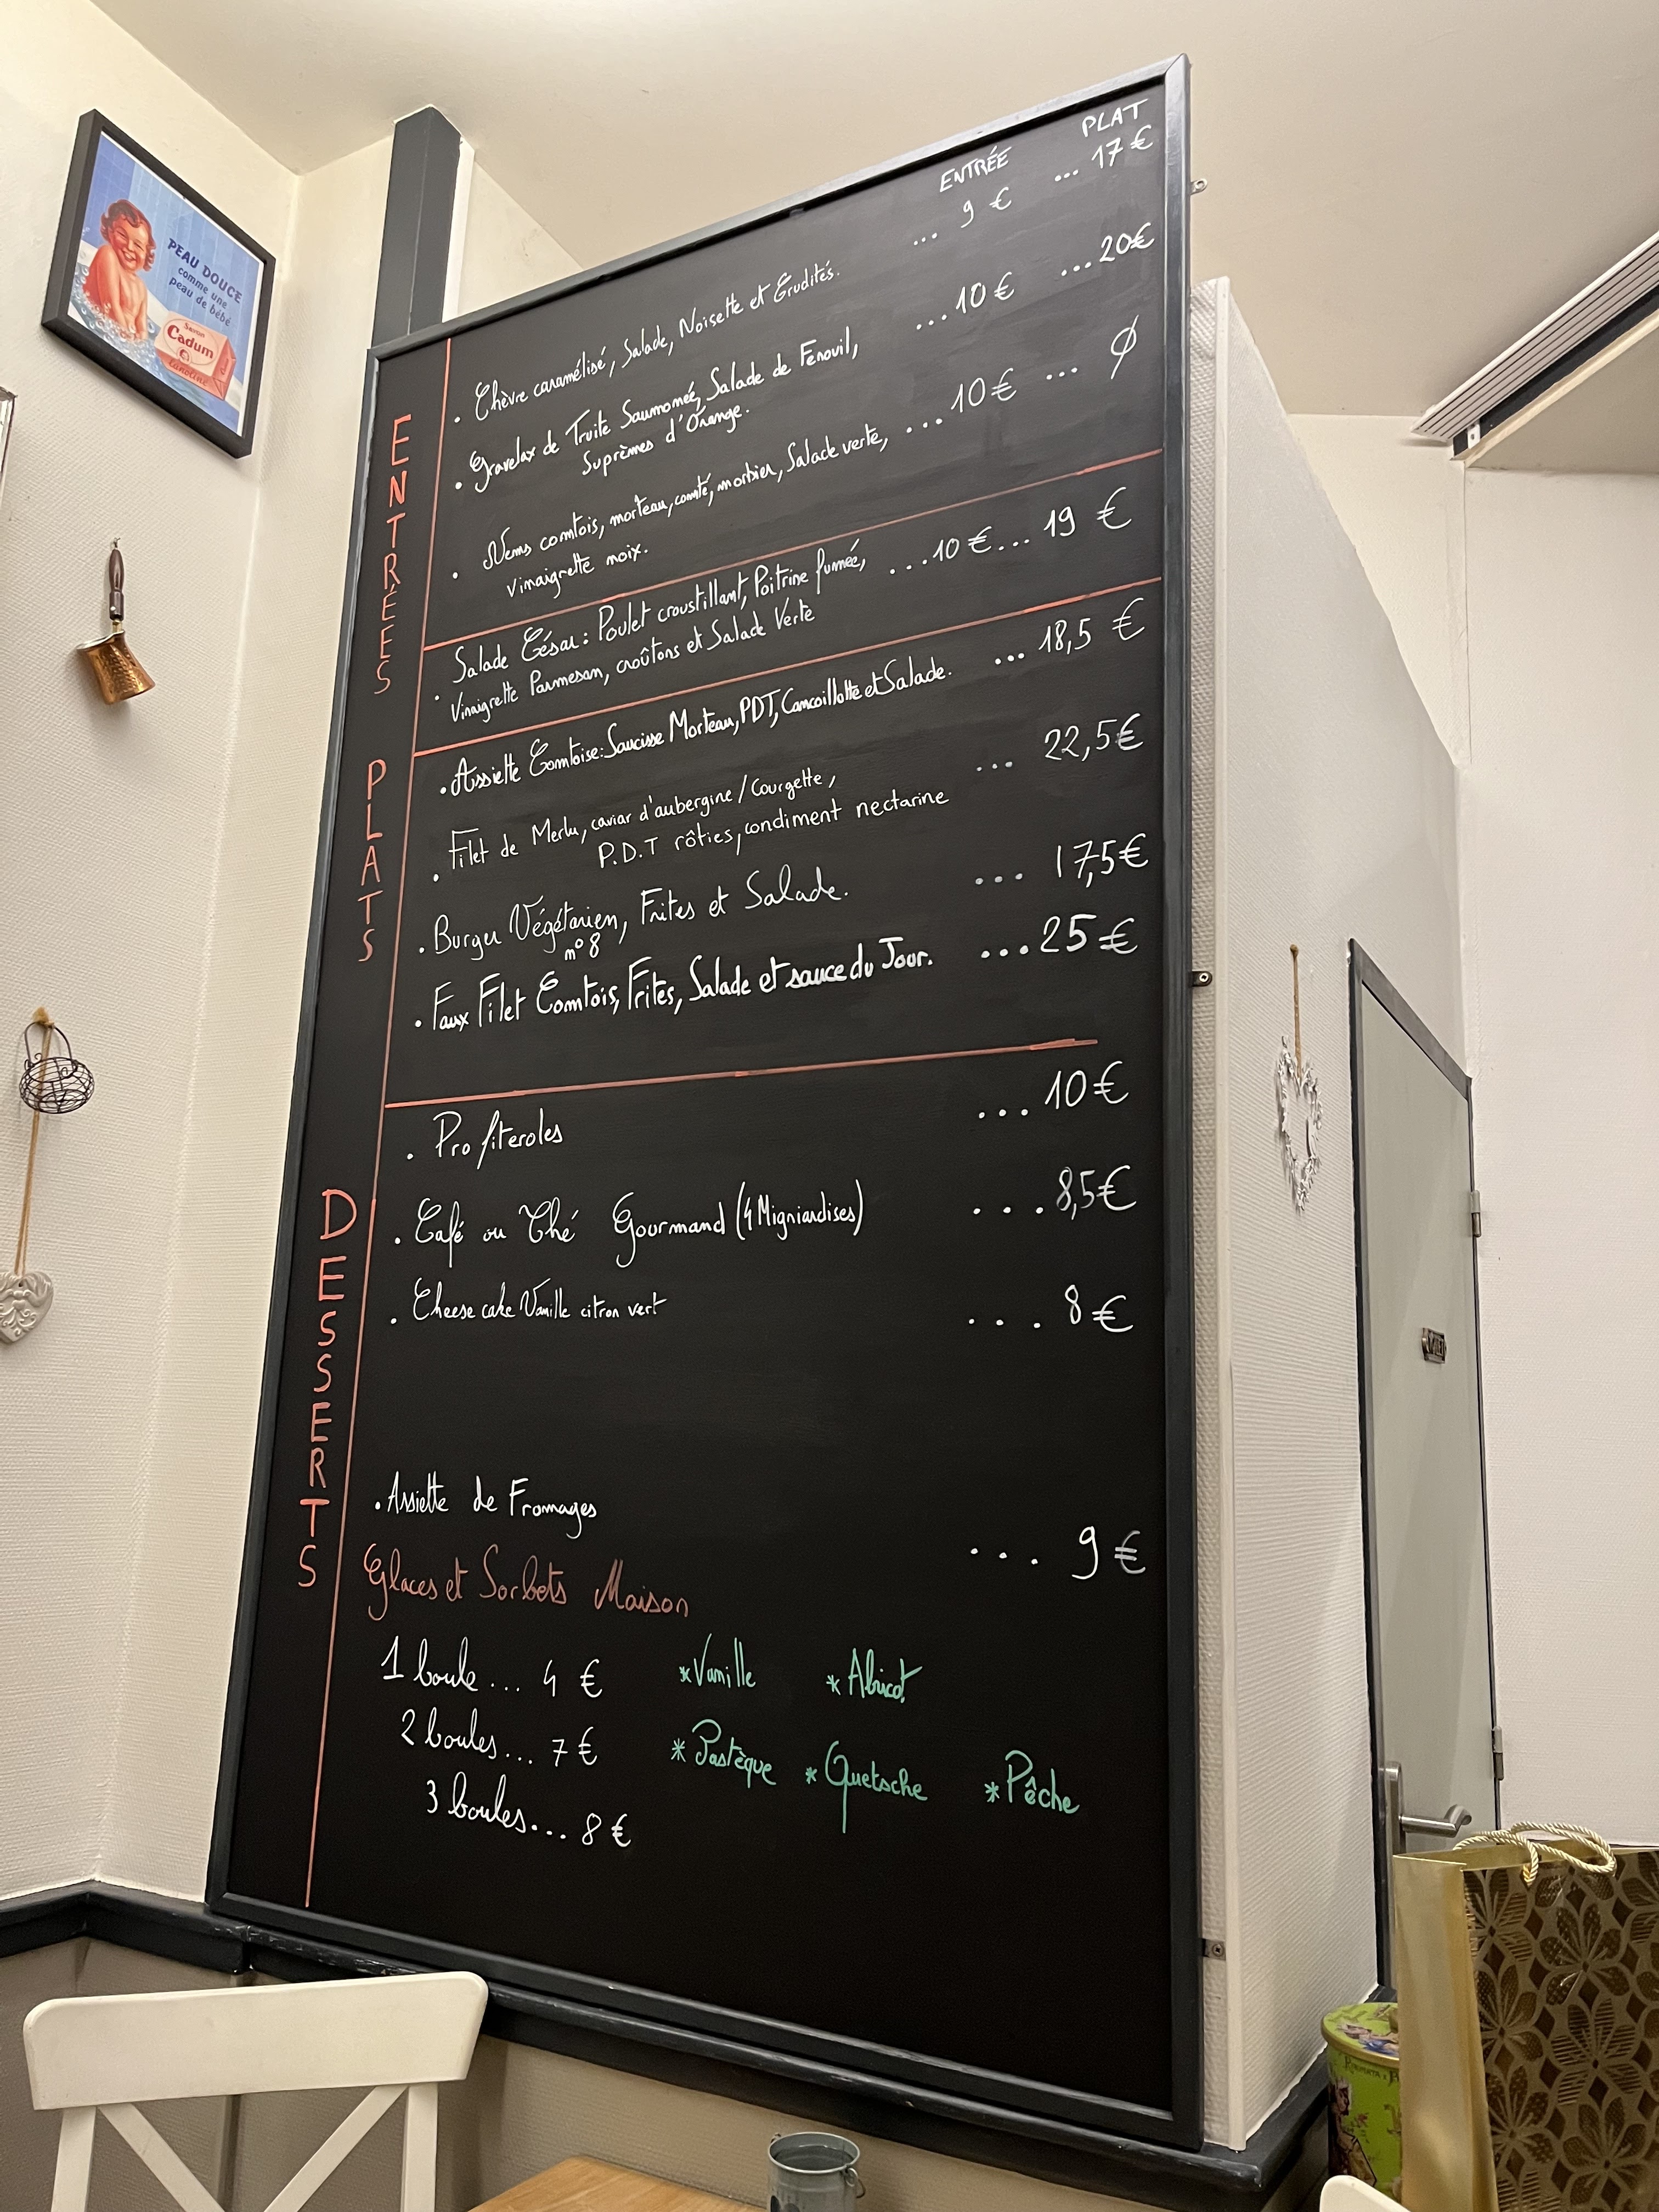 PEAU DOUCE
comme une
peau de bébé
Savon
Cadum
Lanoline
ENTRÉE PLAT
ENTRÉES
. Chèvre caramélisé, Salade, Noisette et Crudités. ... 9 € ... 17 €
. Gravelax de Truite Saumomée, Salade de Fenouil, ...10 € ...20€
Suprèmes d'Orange.
. Nems comtois, morteau, comté, morbier, Salade verte, ...10€ ... Ø
vinaigrette noix.
. Salade César : Poulet croustillant, Poitrine fumée, ...10 €... 19 €
Vinaigrette Parmesan, croûtons et Salade Verte
PLATS
. Assiette Comtoise: Saucisse Morteau, PDT, Cancoillotte et Salade. ... 18,5 €
. Filet de Merlu, caviar d'aubergine / Courgette, ... 22,5€
P.D.T rôties, condiment nectarine
. Burger Végétarien, Frites et Salade. ... 17,5€
n° 8
. Faux Filet Comtois, Frites, Salade et sauce du Jour. ...25 €
DESSERTS
. Profiteroles ... 10€
. Café ou Thé Gourmand (4 Migniardises) ... 8,5€
. Cheese cake Vanille citron vert ... 8 €
. Assiette de Fromages ... 9 €
Glaces et Sorbets Maison
1 boule ... 4 € *Vanille *Abricot
2 boules... 7 € *Pastèque *Quetsche *Pêche
3 boules... 8 €